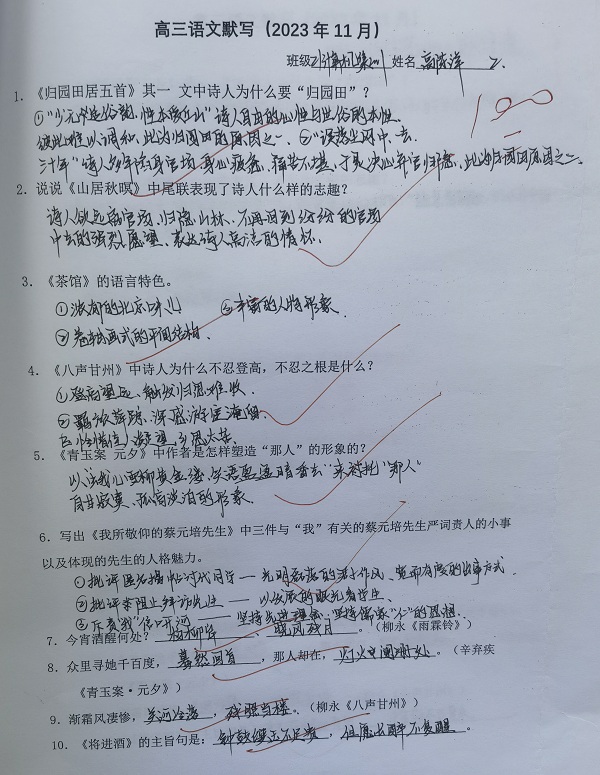 高三语文默写（2023 年 11 月）
班级 计算机 姓名
100
1. 《归园田居五首》其一 文中诗人为什么要“归园田”？
①“少无适俗韵，性本爱丘山”诗人自由的心性与世俗的本性
彼此难以调和，此为归园田的原因之一。②“误落尘网中，一去
三十年”诗人多年官场，身心疲惫，痛苦不堪，于是决心弃官归隐，此为归园田原因之二。
2. 说说《山居秋暝》中尾联表现了诗人什么样的志趣？
诗人欲远离官场，归隐山林，不再回到纷纷的官场
中去的强烈愿望，表达诗人高洁的情怀。
3. 《茶馆》的语言特色。
①浓郁的北京味儿 ③丰富的人物形象
②卷轴画式的平面结构
4. 《八声甘州》中诗人为什么不忍登高，不忍之根是什么？
①登高望远，触发归思难收
②羁旅萍踪，深感游宦淹留
③怜惜佳人凝望，乡思太苦
5. 《青玉案 元夕》中作者是怎样塑造“那人”的形象的？
以“蛾儿雪柳黄金缕，笑语盈盈暗香去”来衬托“那人”
自甘寂寞、孤高淡泊的形象
6. 写出《我所敬仰的蔡元培先生》中三件与“我”有关的蔡元培先生严词责人的小事
以及体现的先生的人格魅力。
①批评匿名揭帖时代同学——光明磊落的 作风、宽而有度的 方式
②批评 阻止 —— 以发展的眼光看学生
③斥责我“信口开河”——坚持 ，坚持儒家“仁”的思想
7. 今宵酒醒何处？ 杨柳岸 晓风残月 。（柳永《雨霖铃》）
8. 众里寻她千百度， 蓦然回首 ，那人却在， 灯火中阑珊处 。（辛弃疾
《青玉案·元夕》）
9. 渐霜风凄惨， 关河冷落 ， 残照当楼 。（柳永《八声甘州》）
10. 《将进酒》的主旨句是： 钟鼓馔玉不足贵 ， 但愿长醉不复醒 。